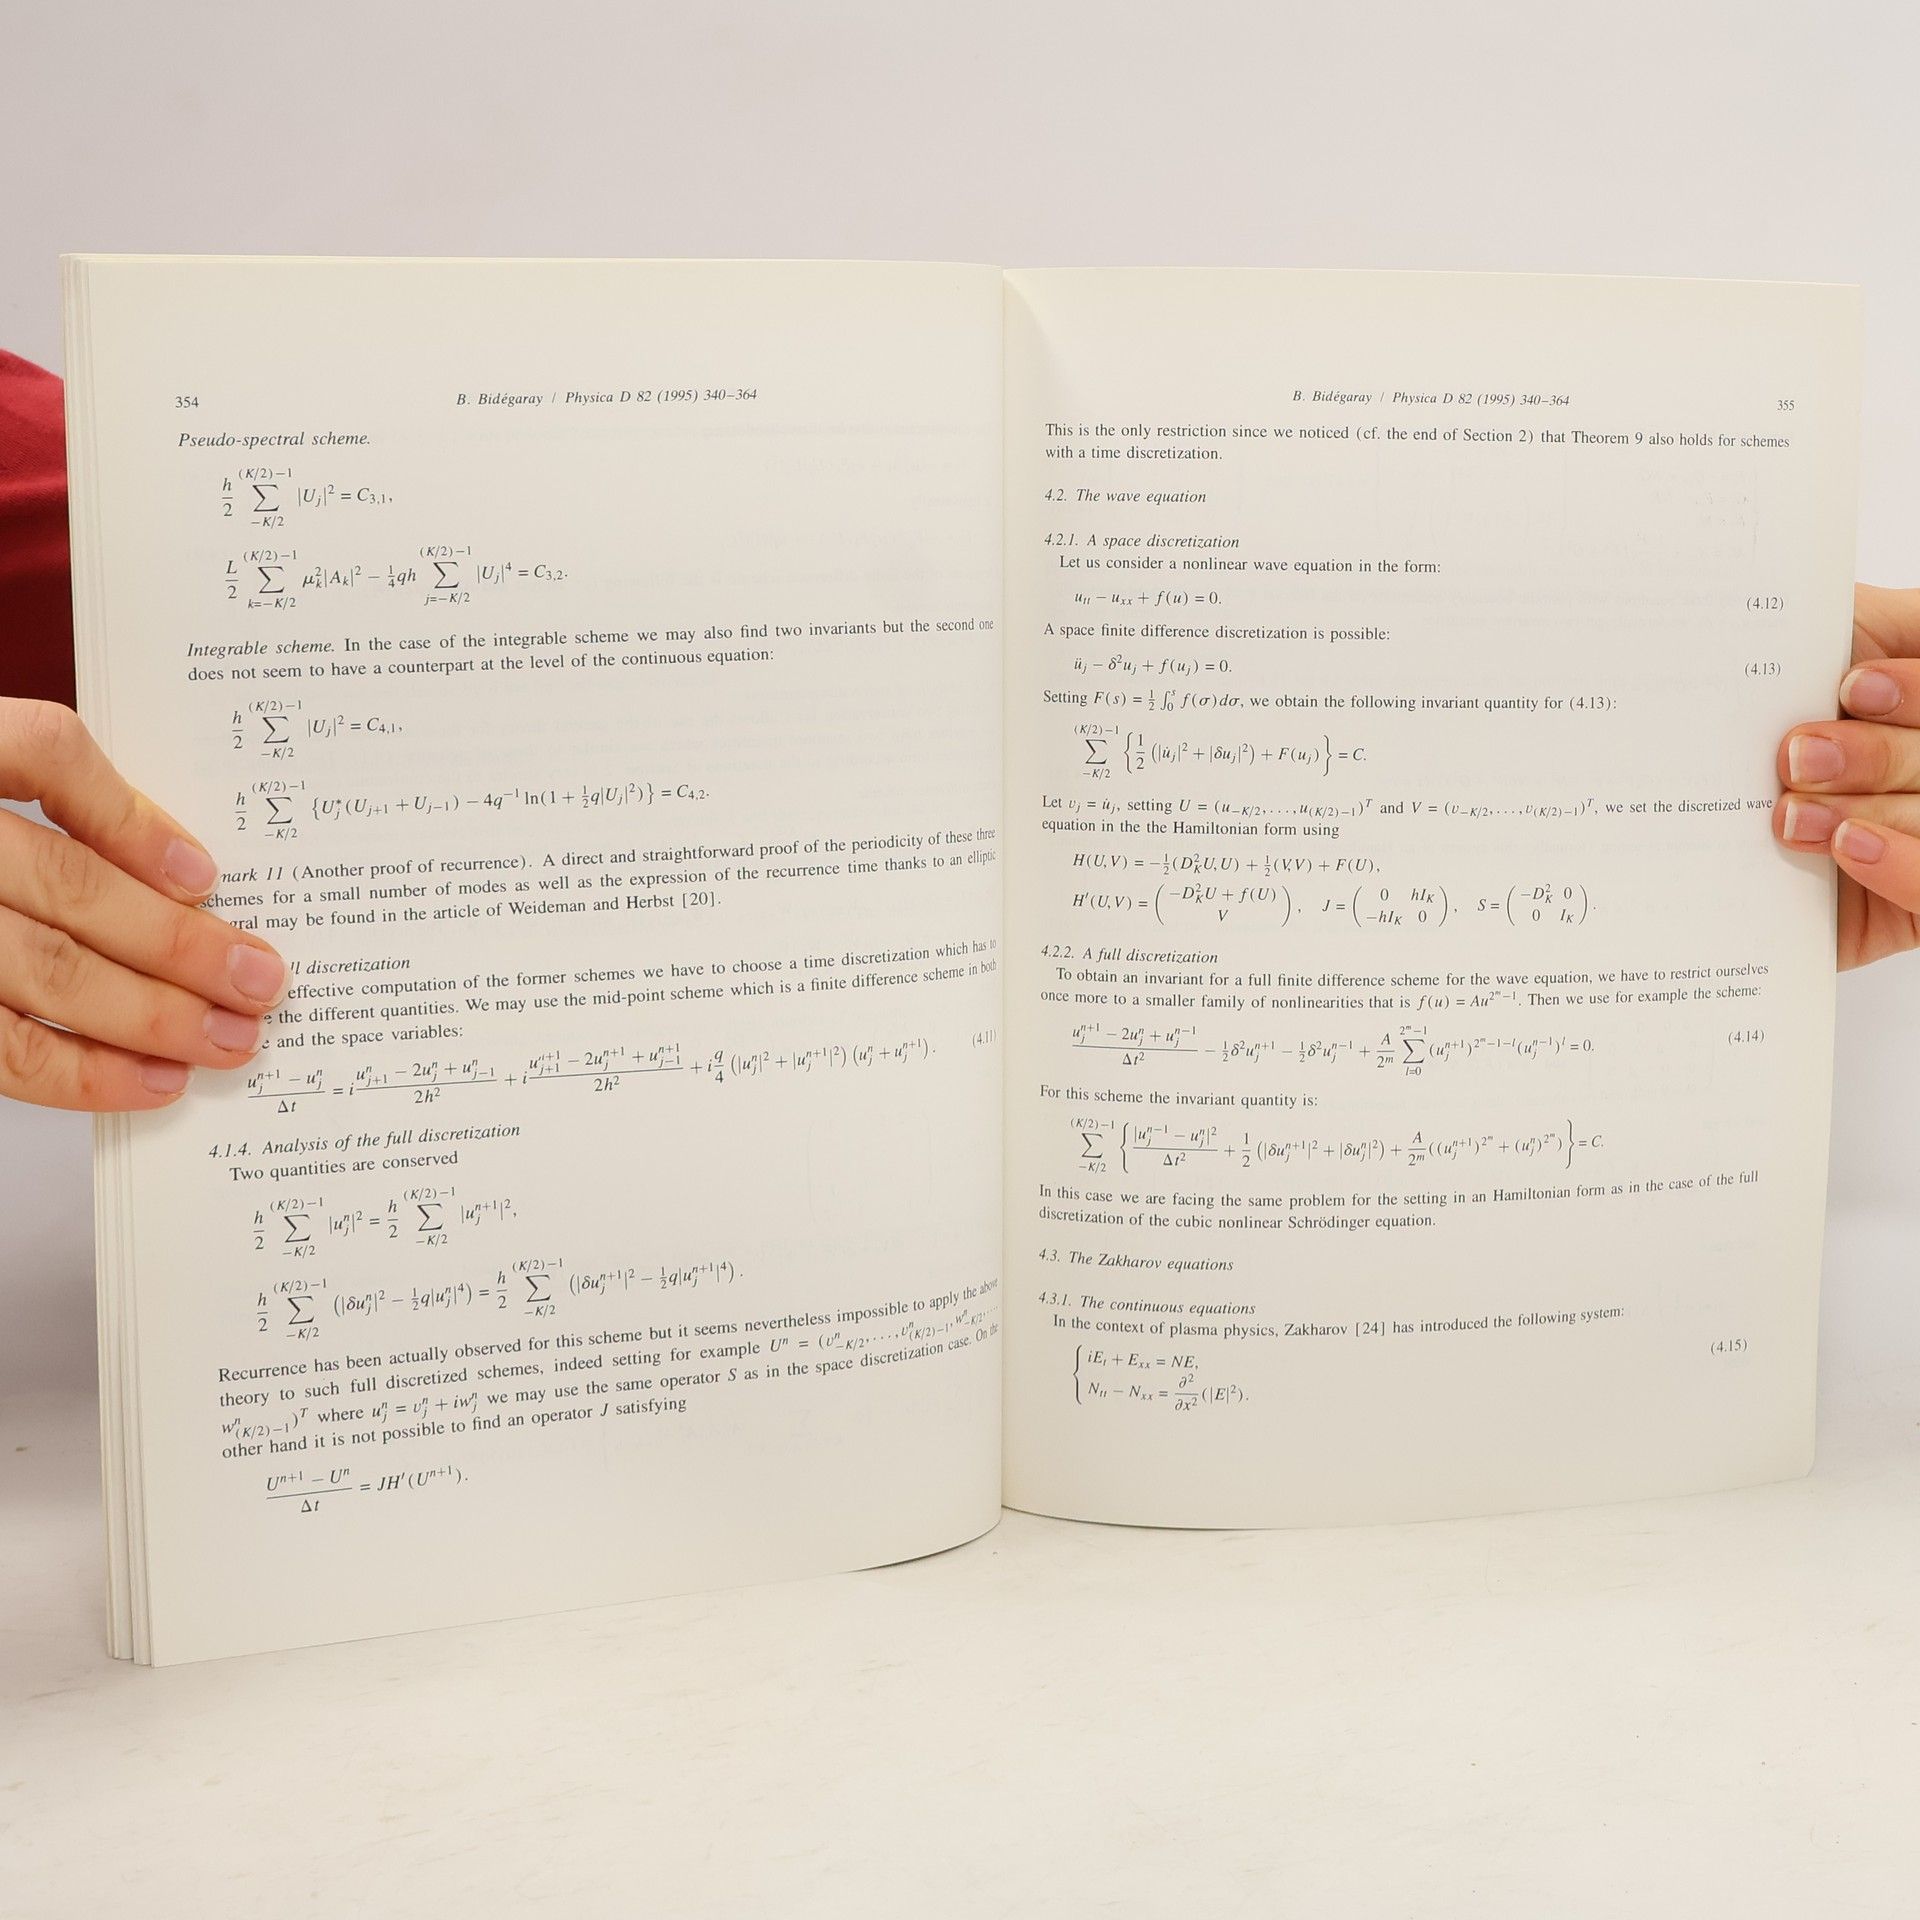 354
B. Bidégaray / Physica D 82 (1995) 340–364
Pseudo-spectral scheme.
\frac{h}{2} \sum_{-K/2}^{(K/2)-1} |U_j|^2 = C_{3,1},
\frac{L}{2} \sum_{k=-K/2}^{(K/2)-1} \mu_k^2 |A_k|^2 - \frac{1}{4} qh \sum_{j=-K/2}^{(K/2)-1} |U_j|^4 = C_{3,2}.
Integrable scheme. In the case of the integrable scheme we may also find two invariants but the second one
does not seem to have a counterpart at the level of the continuous equation:
\frac{h}{2} \sum_{-K/2}^{(K/2)-1} |U_j|^2 = C_{4,1},
\frac{h}{2} \sum_{-K/2}^{(K/2)-1} \{U_j^*(U_{j+1} + U_{j-1}) - 4q^{-1} \ln(1 + \frac{1}{2} q|U_j|^2)\} = C_{4,2}.
mark 11 (Another proof of recurrence). A direct and straightforward proof of the periodicity of these three
schemes for a small number of modes as well as the expression of the recurrence time thanks to an elliptic
gral may be found in the article of Weideman and Herbst [20].
ll discretization
effective computation of the former schemes we have to choose a time discretization which has to
e the different quantities. We may use the mid-point scheme which is a finite difference scheme in both
e and the space variables:
\frac{u_j^{n+1} - u_j^n}{\Delta t} = i \frac{u_{j+1}^n - 2u_j^n + u_{j-1}^n}{2h^2} + i \frac{u_{j+1}^{n+1} - 2u_j^{n+1} + u_{j-1}^{n+1}}{2h^2} + i \frac{q}{4} (|u_j^n|^2 + |u_j^{n+1}|^2) (u_j^n + u_j^{n+1}). (4.11)
4.1.4. Analysis of the full discretization
Two quantities are conserved
\frac{h}{2} \sum_{-K/2}^{(K/2)-1} |u_j^n|^2 = \frac{h}{2} \sum_{-K/2}^{(K/2)-1} |u_j^{n+1}|^2,
\frac{h}{2} \sum_{-K/2}^{(K/2)-1} (|\delta u_j^n|^2 - \frac{1}{2} q|u_j^n|^4) = \frac{h}{2} \sum_{-K/2}^{(K/2)-1} (|\delta u_j^{n+1}|^2 - \frac{1}{2} q|u_j^{n+1}|^4).
Recurrence has been actually observed for this scheme but it seems nevertheless impossible to apply the above
theory to such full discretized schemes, indeed setting for example U^n = (v_{-K/2}^n, \ldots, v_{(K/2)-1}^n, w_{-K/2}^n, \ldots
w_{(K/2)-1}^n)^T where u_j^n = v_j^n + iw_j^n we may use the same operator S as in the space discretization case. On the
other hand it is not possible to find an operator J satisfying
\frac{U^{n+1} - U^n}{\Delta t} = JH'(U^{n+1}).
B. Bidégaray / Physica D 82 (1995) 340–364
355
This is the only restriction since we noticed (cf. the end of Section 2) that Theorem 9 also holds for schemes
with a time discretization.
4.2. The wave equation
4.2.1. A space discretization
Let us consider a nonlinear wave equation in the form:
u_{tt} - u_{xx} + f(u) = 0. (4.12)
A space finite difference discretization is possible:
\ddot{u}_j - \delta^2 u_j + f(u_j) = 0. (4.13)
Setting F(s) = \frac{1}{2} \int_0^s f(\sigma) d\sigma, we obtain the following invariant quantity for (4.13):
\sum_{-K/2}^{(K/2)-1} \left\{ \frac{1}{2} (|\dot{u}_j|^2 + |\delta u_j|^2) + F(u_j) \right\} = C.
Let v_j = \dot{u}_j, setting U = (u_{-K/2}, \ldots, u_{(K/2)-1})^T and V = (v_{-K/2}, \ldots, v_{(K/2)-1})^T, we set the discretized wave
equation in the the Hamiltonian form using
H(U,V) = -\frac{1}{2}(D_K^2 U, U) + \frac{1}{2}(V,V) + F(U),
H'(U,V) = \begin{pmatrix} -D_K^2 U + f(U) \\ V \end{pmatrix}, J = \begin{pmatrix} 0 & hI_K \\ -hI_K & 0 \end{pmatrix}, S = \begin{pmatrix} -D_K^2 & 0 \\ 0 & I_K \end{pmatrix}.
4.2.2. A full discretization
To obtain an invariant for a full finite difference scheme for the wave equation, we have to restrict ourselves
once more to a smaller family of nonlinearities that is f(u) = Au^{2^m-1}. Then we use for example the scheme:
\frac{u_j^{n+1} - 2u_j^n + u_j^{n-1}}{\Delta t^2} - \frac{1}{2} \delta^2 u_j^{n+1} - \frac{1}{2} \delta^2 u_j^{n-1} + \frac{A}{2^m} \sum_{l=0}^{2^m-1} (u_j^{n+1})^{2^m-1-l} (u_j^{n-1})^l = 0. (4.14)
For this scheme the invariant quantity is:
\sum_{-K/2}^{(K/2)-1} \left\{ \frac{|u_j^{n-1} - u_j^n|^2}{\Delta t^2} + \frac{1}{2} (|\delta u_j^{n+1}|^2 + |\delta u_j^n|^2) + \frac{A}{2^m} ((u_j^{n+1})^{2^m} + (u_j^n)^{2^m}) \right\} = C.
In this case we are facing the same problem for the setting in an Hamiltonian form as in the case of the full
discretization of the cubic nonlinear Schrödinger equation.
4.3. The Zakharov equations
4.3.1. The continuous equations
In the context of plasma physics, Zakharov [24] has introduced the following system:
\begin{cases} iE_t + E_{xx} = NE, \\ N_{tt} - N_{xx} = \frac{\partial^2}{\partial x^2} (|E|^2). \end{cases} (4.15)